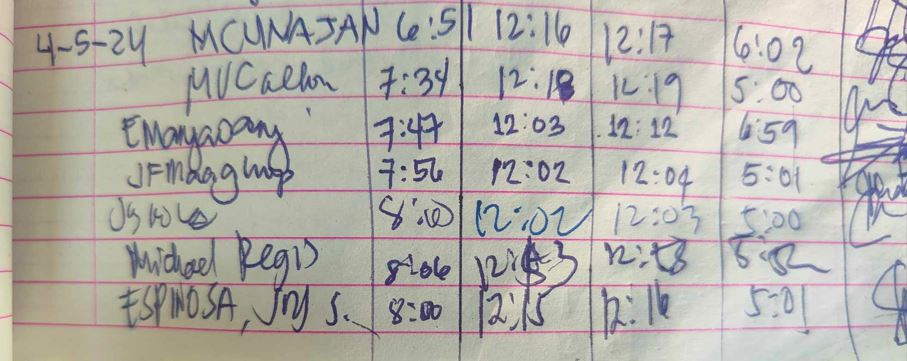 4-5-24 MCUNAJAN 6:51 12:16 12:17 6:02
7:34 12:18 12:19 5:00
7:47 12:03 12:12 6:59
7:56 12:02 12:04 5:01
8:00 12:02 12:03 5:00
Michael Regis 8:06
ESPINOSA, Joy S. 8:00 12:15 12:16 5:01